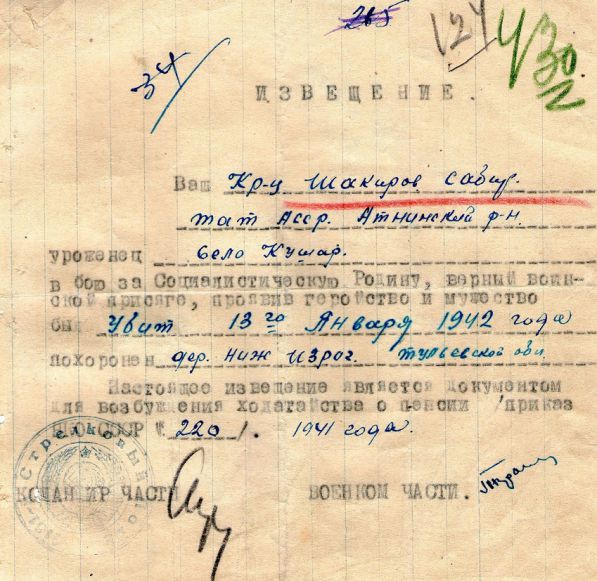 265
124
4/30
34
ИЗВЕЩЕНИЕ.
Ваш Кр-ц Шакиров Сабир.
тат Асср. Атнинский р-н
уроженец село Кушар.
в бою за Социалистическую Родину, верный воин-
ской присяге, проявив геройство и мужество
был Убит 13го Января 1942 года
похоронен дер. Ниж Изрог. Тульевской обл.
Настоящее извещение является документом
для возбуждения ходатайства о пенсии /приказ
НКО СССР № 220/. 1941 года.
Стрелковый
КОМАНДИР ЧАСТИ ВОЕНКОМ ЧАСТИ.